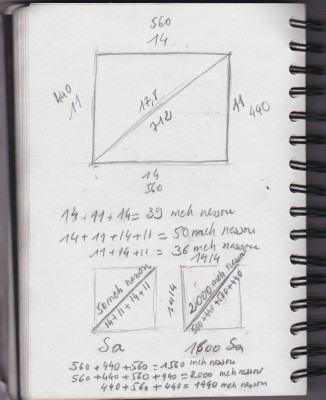 560
14
440
11
17,8
712
11
440
14
560
14+11+14=39 meh nesou
14+11+14+11=50 meh nesou
11+14+11=36 meh nesou
1414
50 meh nesou
14+11+14+11
1414
2000 meh nesou
560+440+560+440
Sa
1600 Sa
560+440+560=1560 meh nesou
560+440+560+440=2000 meh nesou
440+560+440=1440 meh nesou